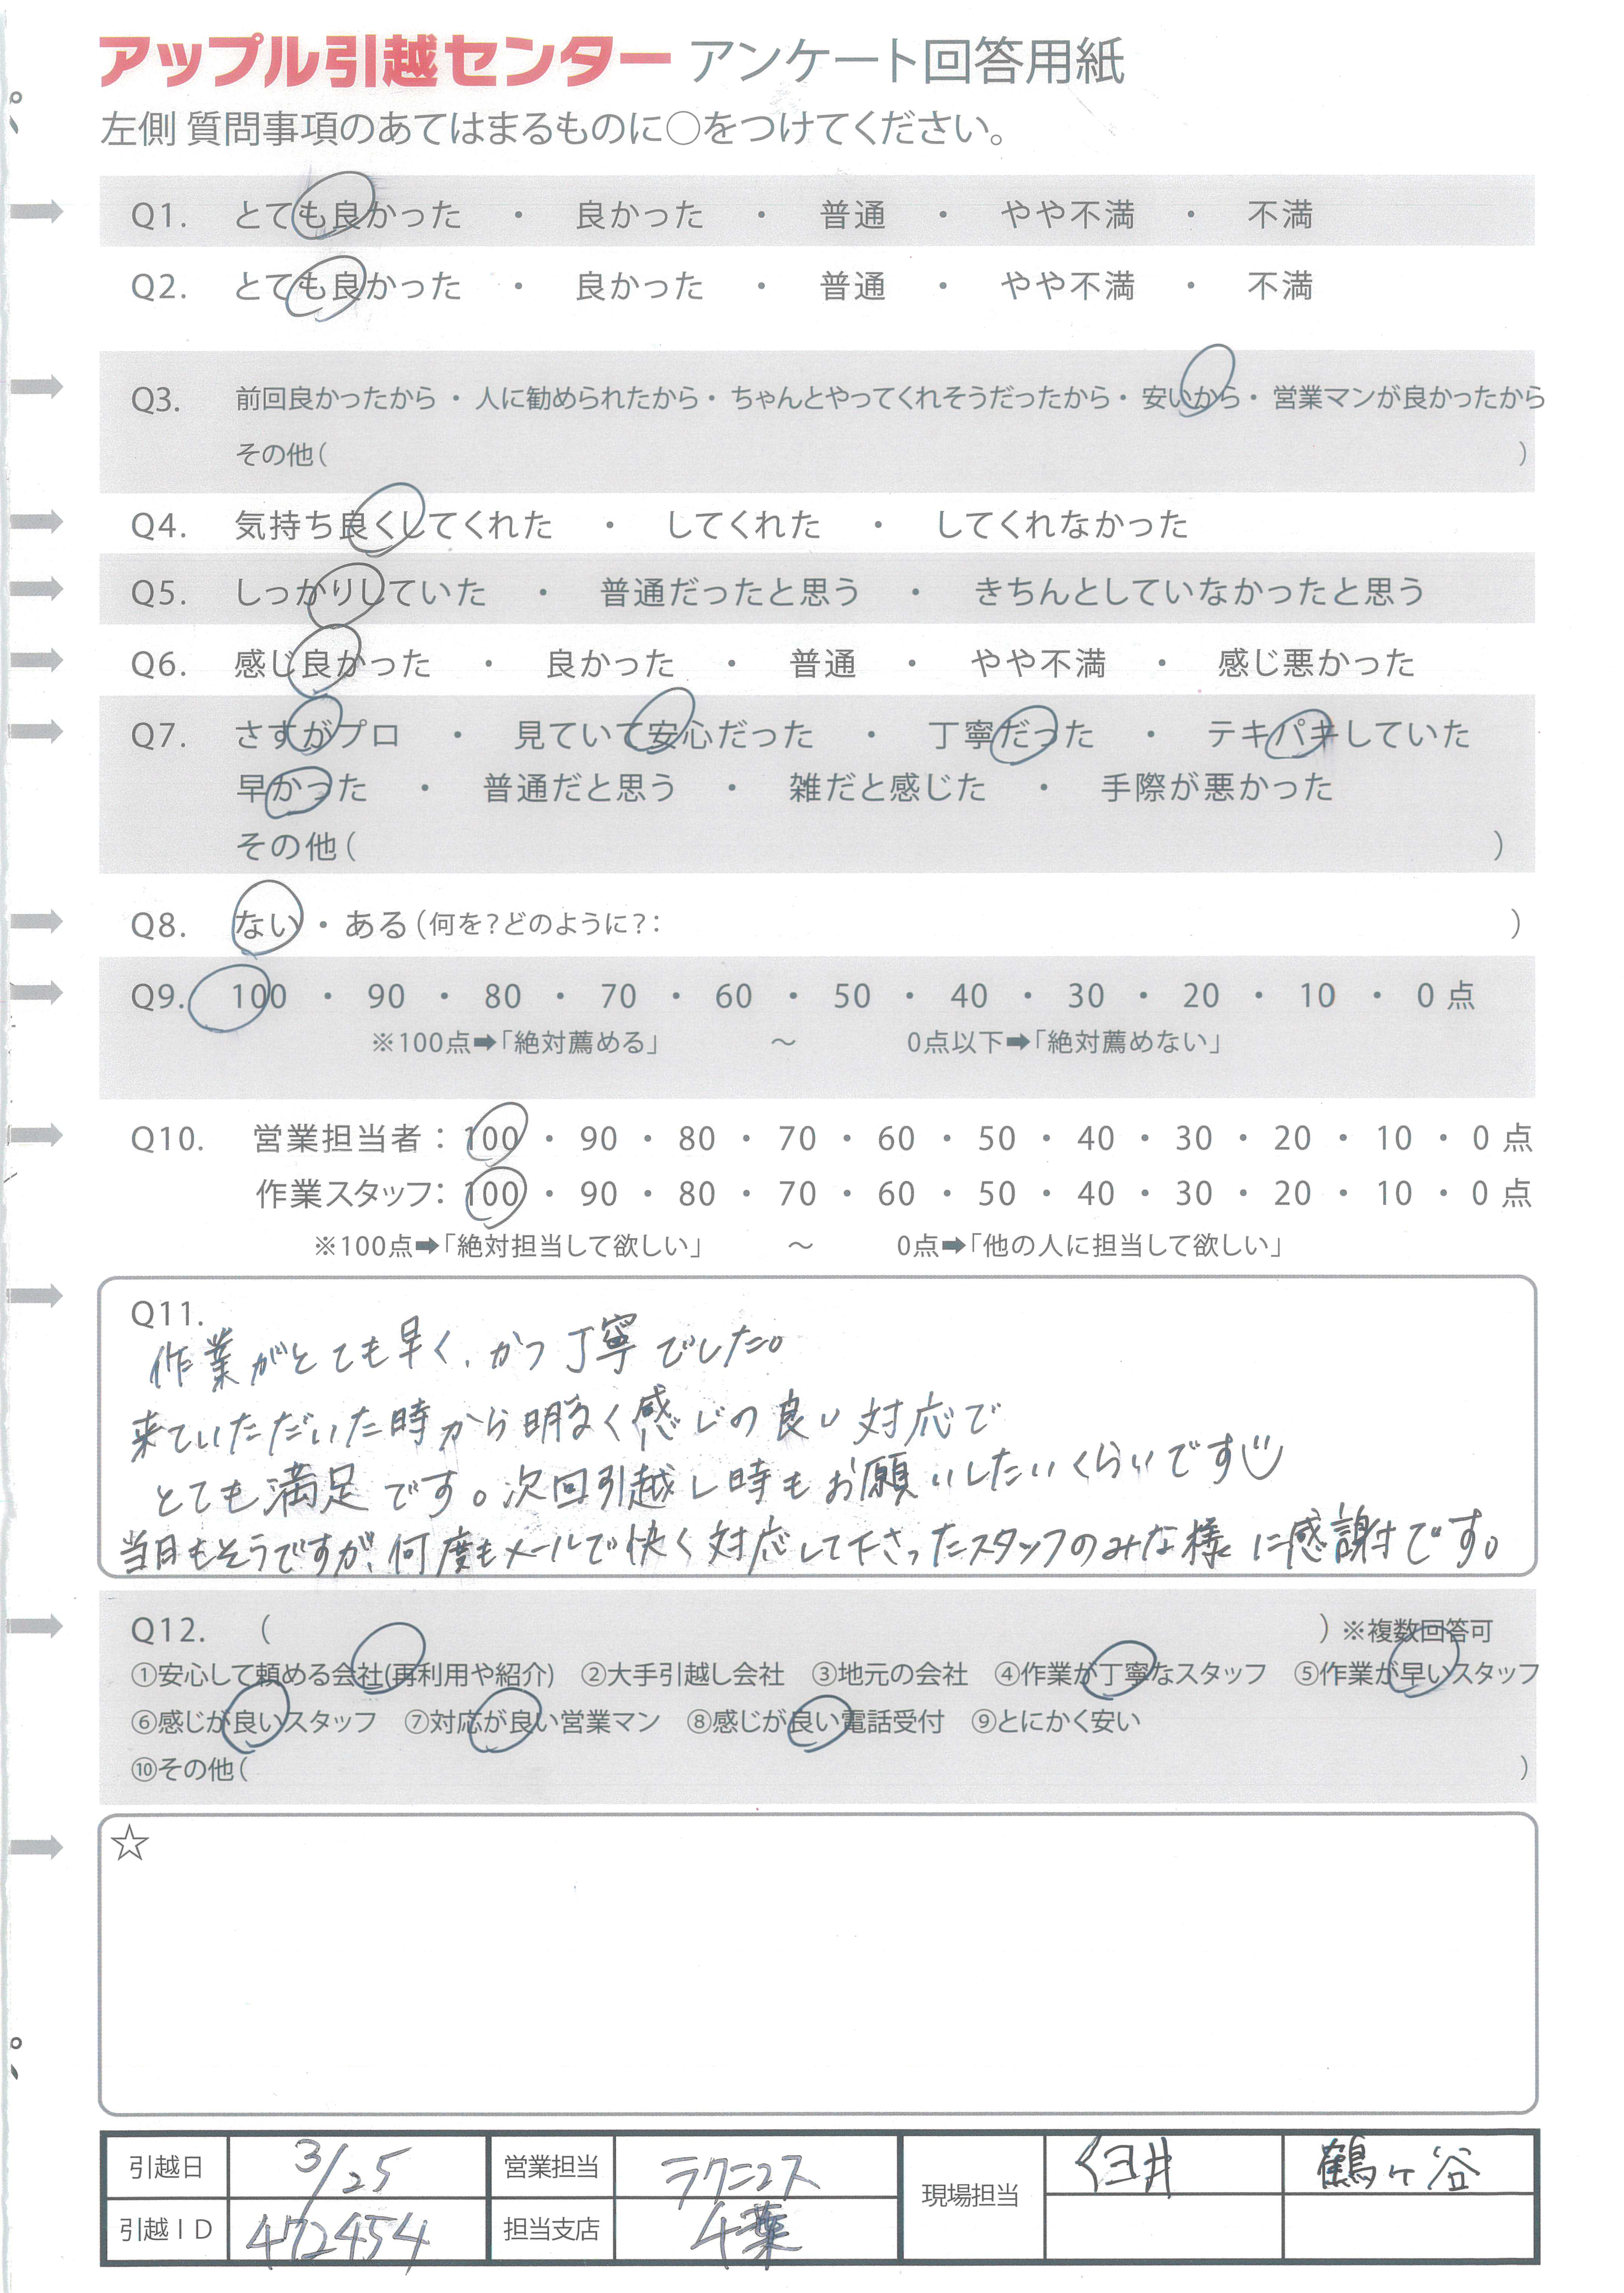 アップル引越センター アンケート回答用紙
左側 質問事項のあてはまるものに○をつけてください。
Q1. とても良かった ・ 良かった ・ 普通 ・ やや不満 ・ 不満
Q2. とても良かった ・ 良かった ・ 普通 ・ やや不満 ・ 不満
Q3. 前回良かったから ・ 人に勧められたから ・ ちゃんとやってくれそうだったから ・ 安いから ・ 営業マンが良かったから
その他( )
Q4. 気持ち良くしてくれた ・ してくれた ・ してくれなかった
Q5. しっかりしていた ・ 普通だったと思う ・ きちんとしていなかったと思う
Q6. 感じ良かった ・ 良かった ・ 普通 ・ やや不満 ・ 感じ悪かった
Q7. さすがプロ ・ 見ていて安心だった ・ 丁寧だった ・ テキパキしていた
早かった ・ 普通だと思う ・ 雑だと感じた ・ 手際が悪かった
その他( )
Q8. ない ・ ある(何を?どのように?: )
Q9. 100 ・ 90 ・ 80 ・ 70 ・ 60 ・ 50 ・ 40 ・ 30 ・ 20 ・ 10 ・ 0 点
※100点➡「絶対薦める」 ～ 0点以下➡「絶対薦めない」
Q10. 営業担当者: 100 ・ 90 ・ 80 ・ 70 ・ 60 ・ 50 ・ 40 ・ 30 ・ 20 ・ 10 ・ 0 点
作業スタッフ: 100 ・ 90 ・ 80 ・ 70 ・ 60 ・ 50 ・ 40 ・ 30 ・ 20 ・ 10 ・ 0 点
※100点➡「絶対担当して欲しい」 ～ 0点➡「他の人に担当して欲しい」
Q11.
作業がとても早く、かつ丁寧でした。
来ていただいた時から明るく感じの良い対応で
とても満足です。次回引越し時もお願いしたいくらいです
当日もそうですが、何度もメールで快く対応して下さったスタッフのみな様に感謝です。
Q12. ( ) ※複数回答可
①安心して頼める会社(再利用や紹介) ②大手引越し会社 ③地元の会社 ④作業が丁寧なスタッフ ⑤作業が早いスタッフ
⑥感じが良いスタッフ ⑦対応が良い営業マン ⑧感じが良い電話受付 ⑨とにかく安い
⑩その他( )
☆
引越日 3/25 営業担当 ラクニコス 現場担当 鶴ヶ谷
引越ID 472454 担当支店 千葉